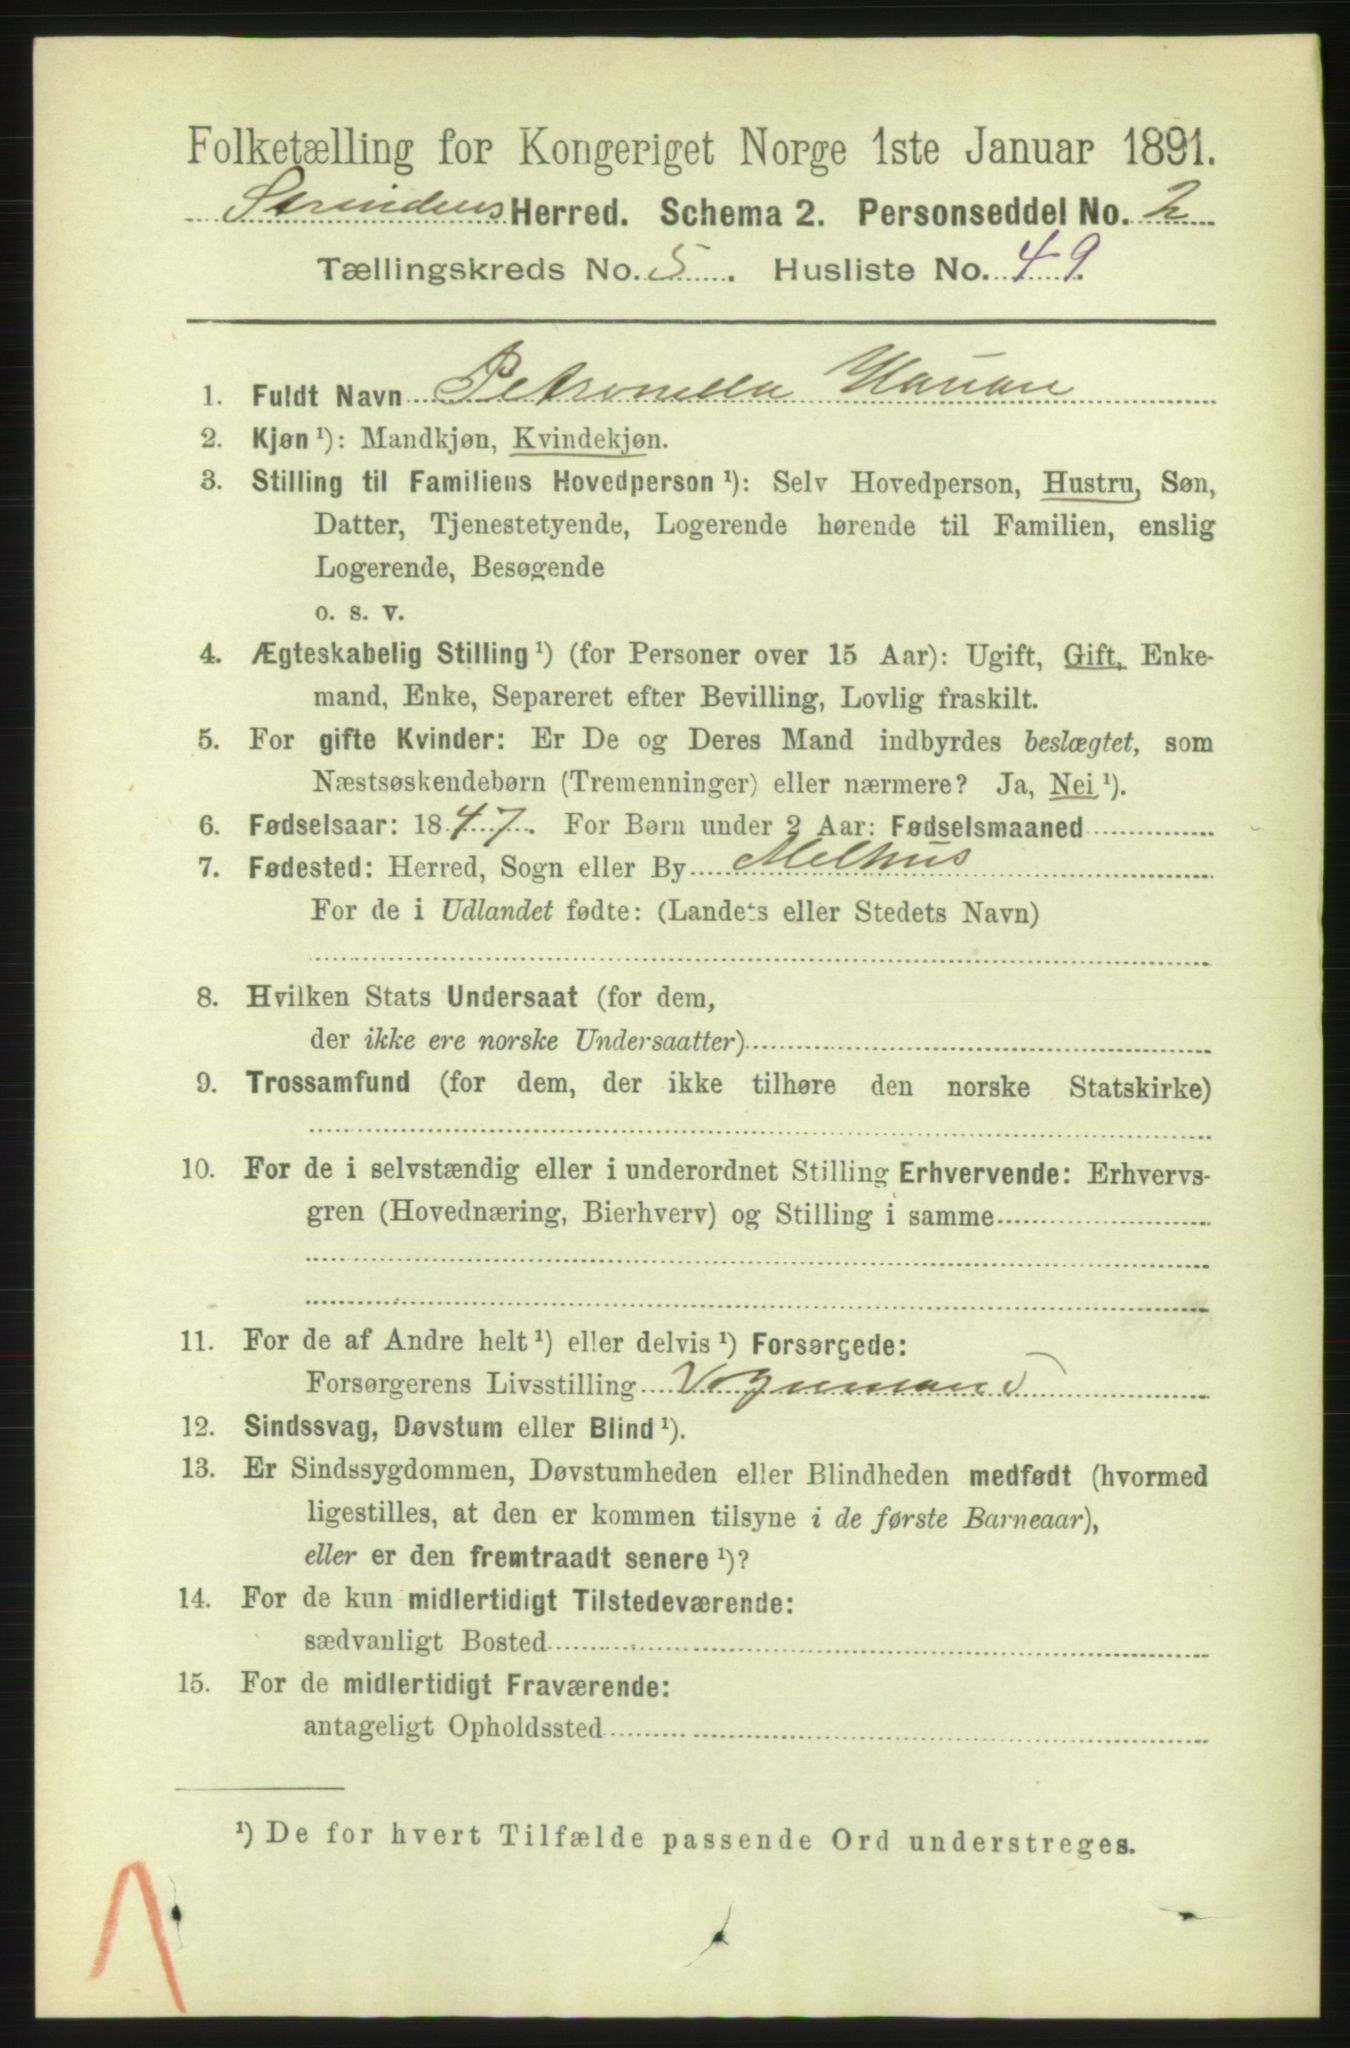 Folketælling for Kongeriget Norge 1ste Januar 1891.
Strindens Herred. Schema 2. Personseddel No. 2
Tællingskreds No. 5. Husliste No. 49.
1. Fuldt Navn Petronella Hauan
2. Kjøn ¹): Mandkjøn, Kvindekjøn.
3. Stilling til Familiens Hovedperson ¹): Selv Hovedperson, Hustru, Søn,
Datter, Tjenestetyende, Logerende hørende til Familien, enslig
Logerende, Besøgende
o. s. v.
4. Ægteskabelig Stilling ¹) (for Personer over 15 Aar): Ugift, Gift, Enke-
mand, Enke, Separeret efter Bevilling, Lovlig fraskilt.
5. For gifte Kvinder: Er De og Deres Mand indbyrdes beslægtet, som
Næstsøskendebørn (Tremenninger) eller nærmere? Ja, Nei ¹).
6. Fødselsaar: 1847. For Børn under 2 Aar: Fødselsmaaned
7. Fødested: Herred, Sogn eller By Melhus
For de i Udlandet fødte: (Landets eller Stedets Navn)
8. Hvilken Stats Undersaat (for dem,
der ikke ere norske Undersaatter)
9. Trossamfund (for dem, der ikke tilhøre den norske Statskirke)
10. For de i selvstændig eller i underordnet Stilling Erhvervende: Erhvervs-
gren (Hovednæring, Bierhverv) og Stilling i samme
11. For de af Andre helt ¹) eller delvis ¹) Forsørgede:
Forsørgerens Livsstilling Vognmand
12. Sindssvag, Døvstum eller Blind ¹).
13. Er Sindssygdommen, Døvstumheden eller Blindheden medfødt (hvormed
ligestilles, at den er kommen tilsyne i de første Barneaar),
eller er den fremtraadt senere ¹)?
14. For de kun midlertidigt Tilstedeværende:
sædvanligt Bosted
15. For de midlertidigt Fraværende:
antageligt Opholdssted
¹) De for hvert Tilfælde passende Ord understreges.